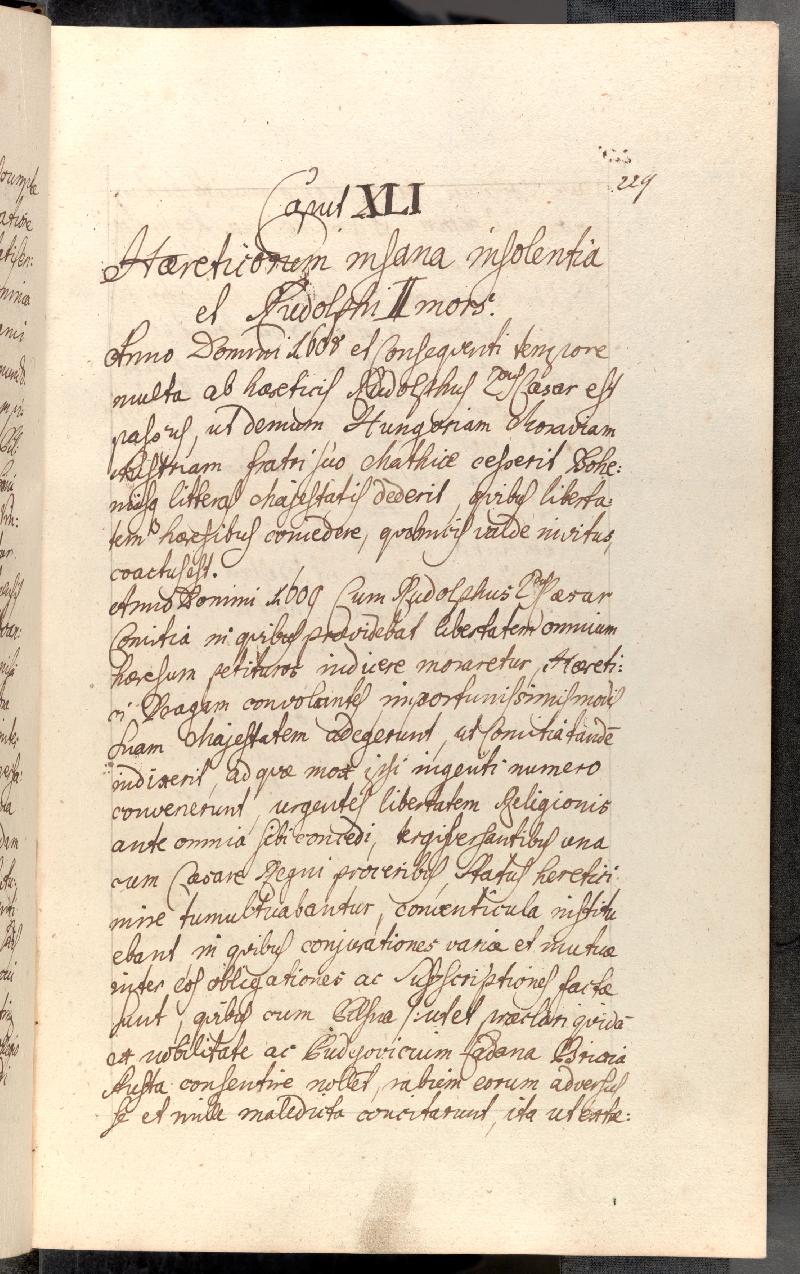 229
Caput XLI
Hæreticorum insana insolentia
et Rudolphi II mors.
Anno Domini 1608 et consequenti tempore
multa ab hæreticis Rudolphus 2dus Cæsar est
passus, ut demum Hungariam Moraviam
Austriam fratri suo Mathiæ cesserit Bohe:
misq litteras Majestatis dederit, quibus liberta:
tem hæresibus concedere, quamvis valde invitus,
coactus est.
Anno Domini 1609 Cum Rudolphus 2dus Cæsar
Comitia in quibus prævidebat libertatem omnium
hæresum petituros indicere moraretur, Hæreti:
ci Pragam convolantes importunissimis modis
Suam Majestatem adegerunt, ut Comitia tandē
indixerit, ad quæ mox ipsi ingenti numero
convenerunt, urgentes libertatem Religionis
ante omnia sibi concedi, tergiversantibus una
cum Cæsare Regni proceribus Status heretici
mire tumultuabantur, conventicula institu
ebant in quibus conjurationes variæ et mutuæ
inter eos obligationes ac subscriptiones factæ
sunt, quibus cum Pilsna /: utet præclari quidē
et nobilitate ac Budvovicium Cadana Brixia
Austa consentire nollet, rabiem eorum adversus
se et mille maledicta concitarunt, ita ut